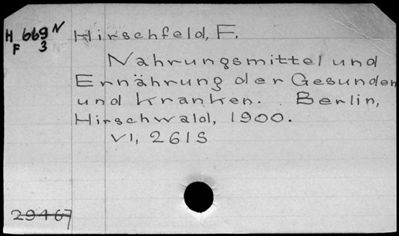 H 669 N Hirschfeld, F.
F 3
Nahrungsmittel und
Ernährung der Gesunden
und Kranken. Berlin,
Hirschwald, 1900.
VI, 261S
29467